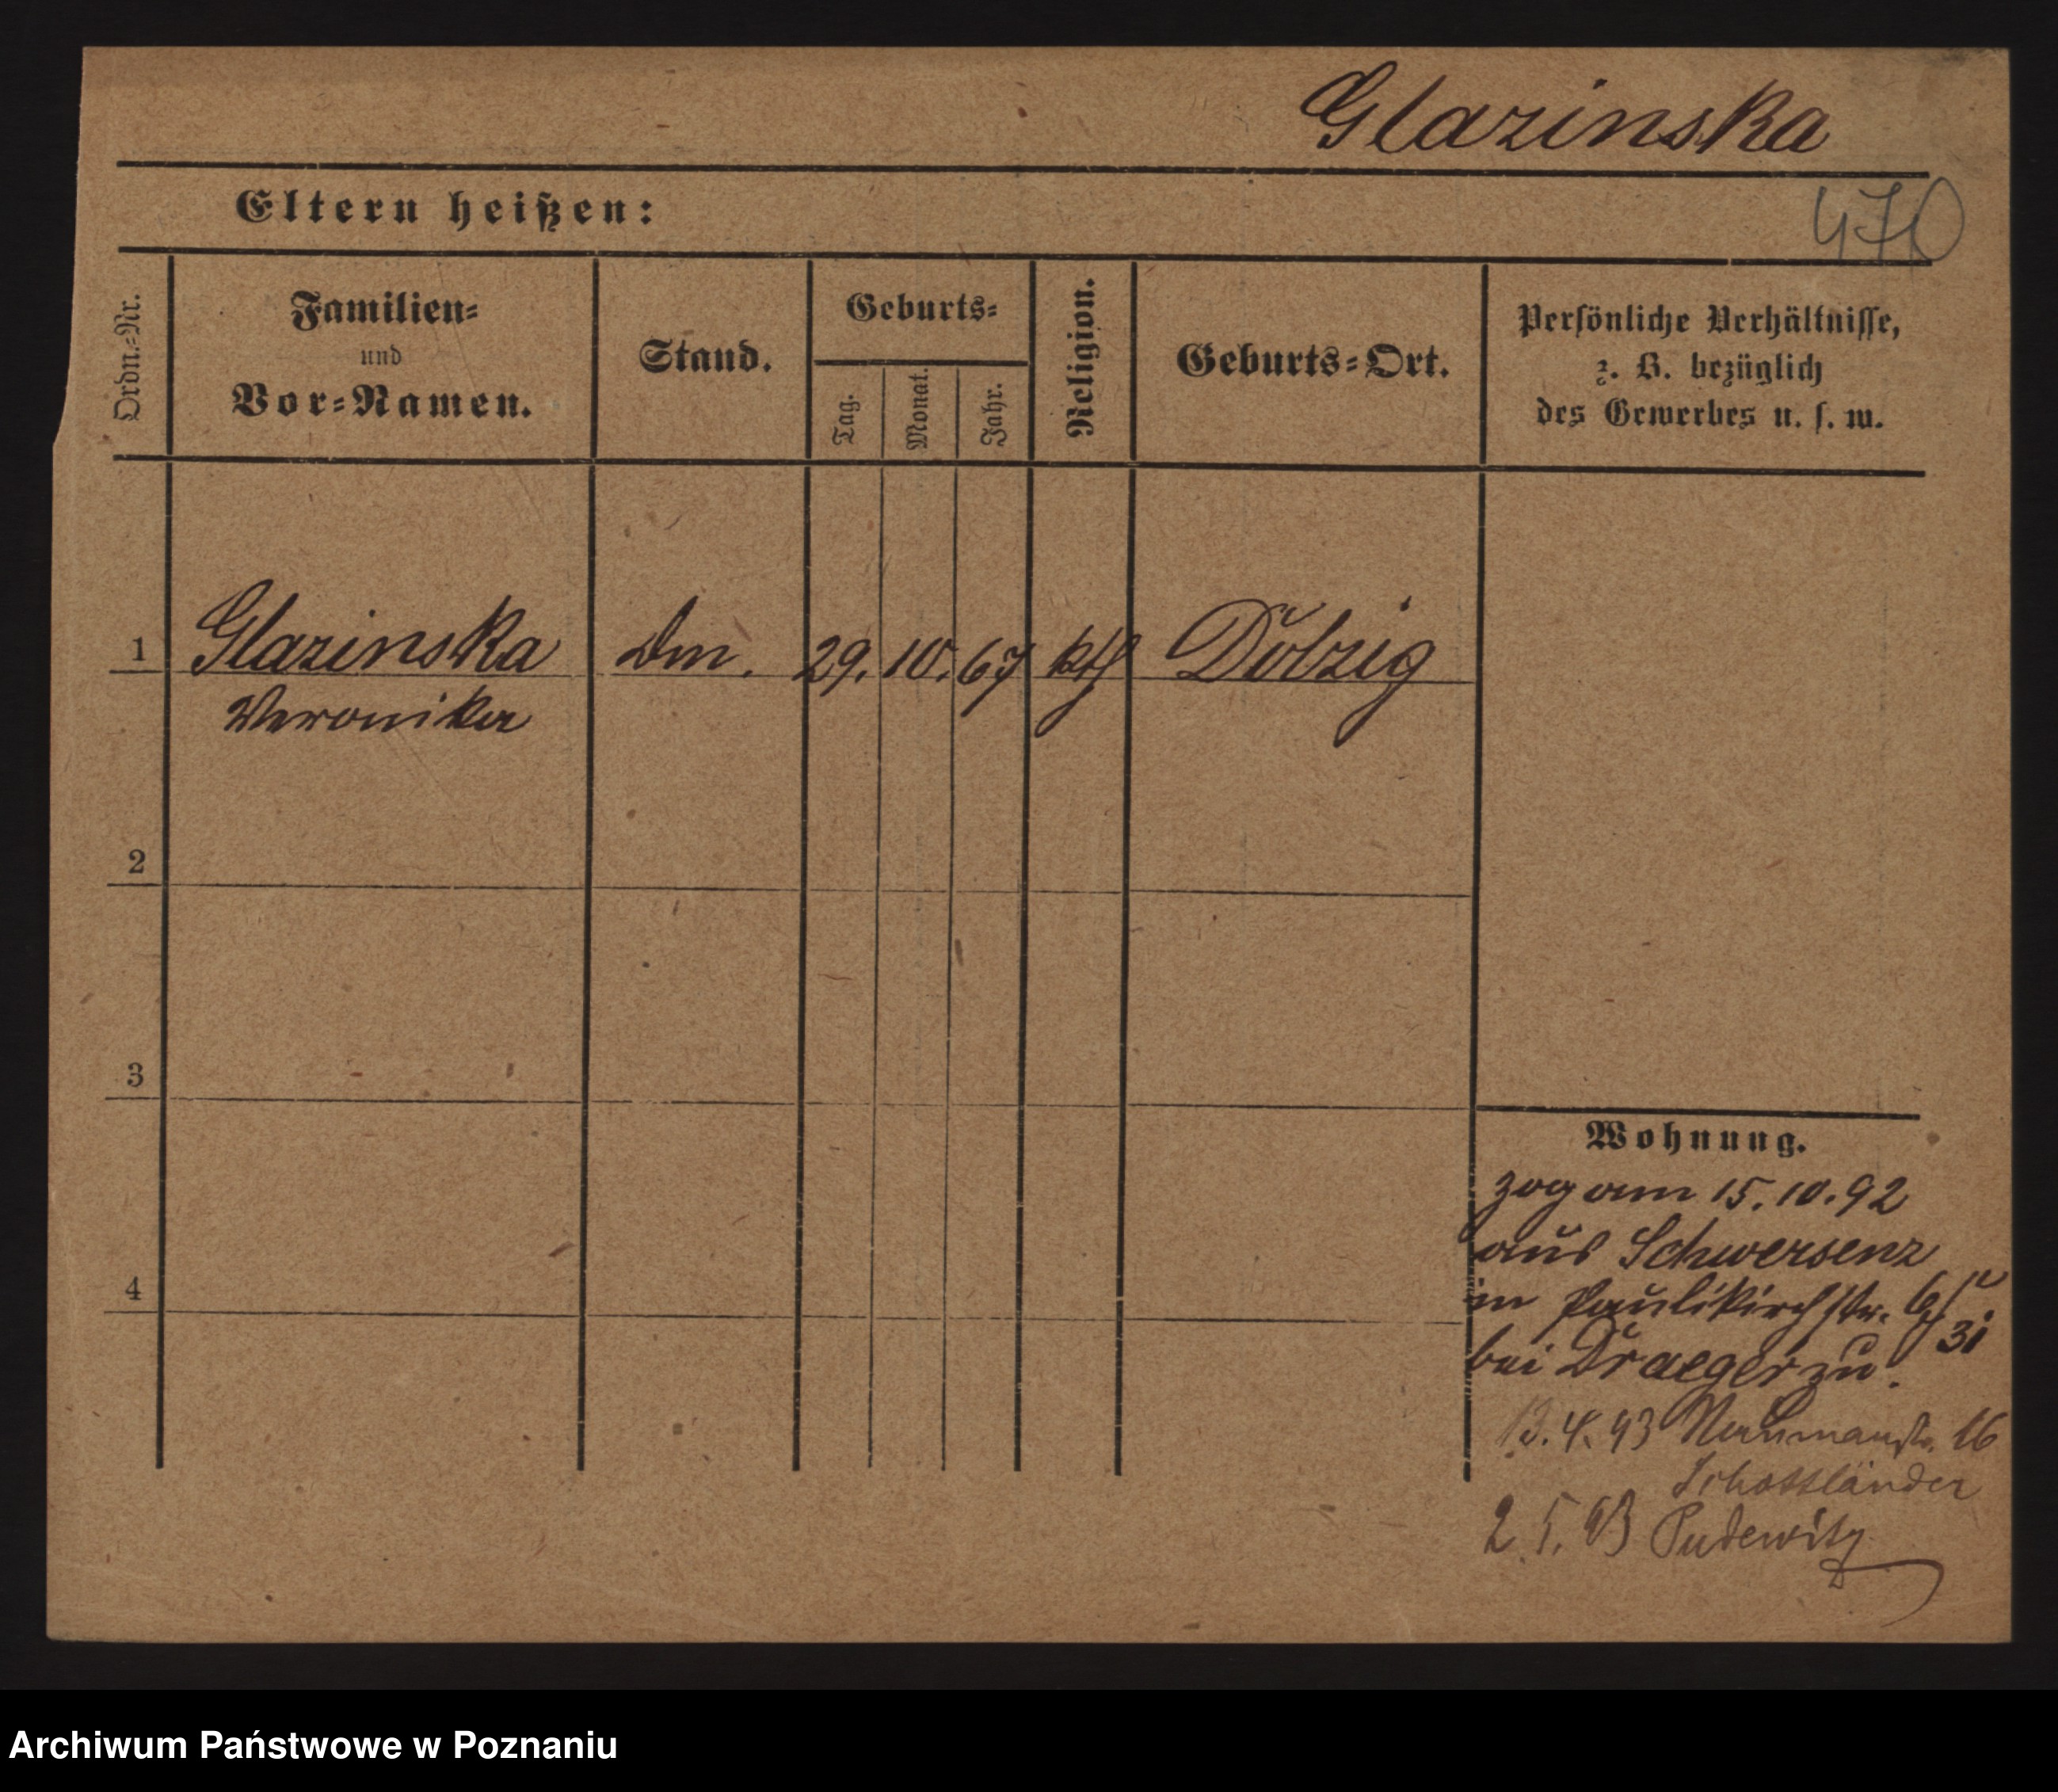 Glazinska
Eltern heißen:
470
Ordn.-Nr.
Familien-
und
Vor-Namen.
Stand.
Geburts-
Tag.
Monat.
Jahr.
Religion.
Geburts-Ort.
Persönliche Verhältnisse,
z. B. bezüglich
des Gewerbes u. s. w.
1 Glazinska Dm. 29. 10. 67 kth Dolzig
Veronika
2
3
4
Wohnung.
zog am 15.10.92
aus Schwersenz
in Paulikirchstr.
bei Draeger zu.
13.4.93 Naumannstr. 16
Schottländer
2.5.93 Pudewitz
Archiwum Państwowe w Poznaniu